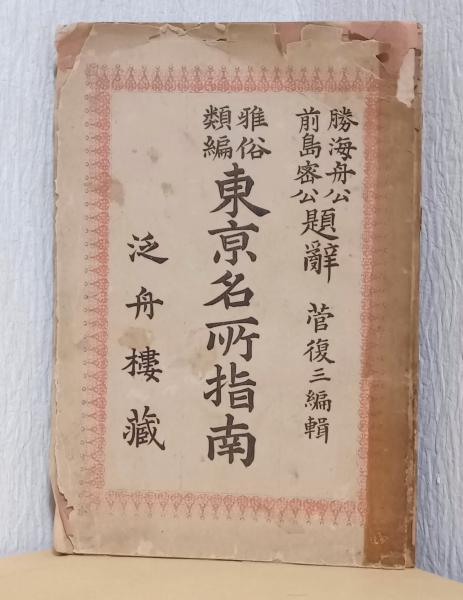 勝海舟公
前島密公
題辭 菅復三編輯
雅俗
類編
東京名所指南
泛舟樓藏